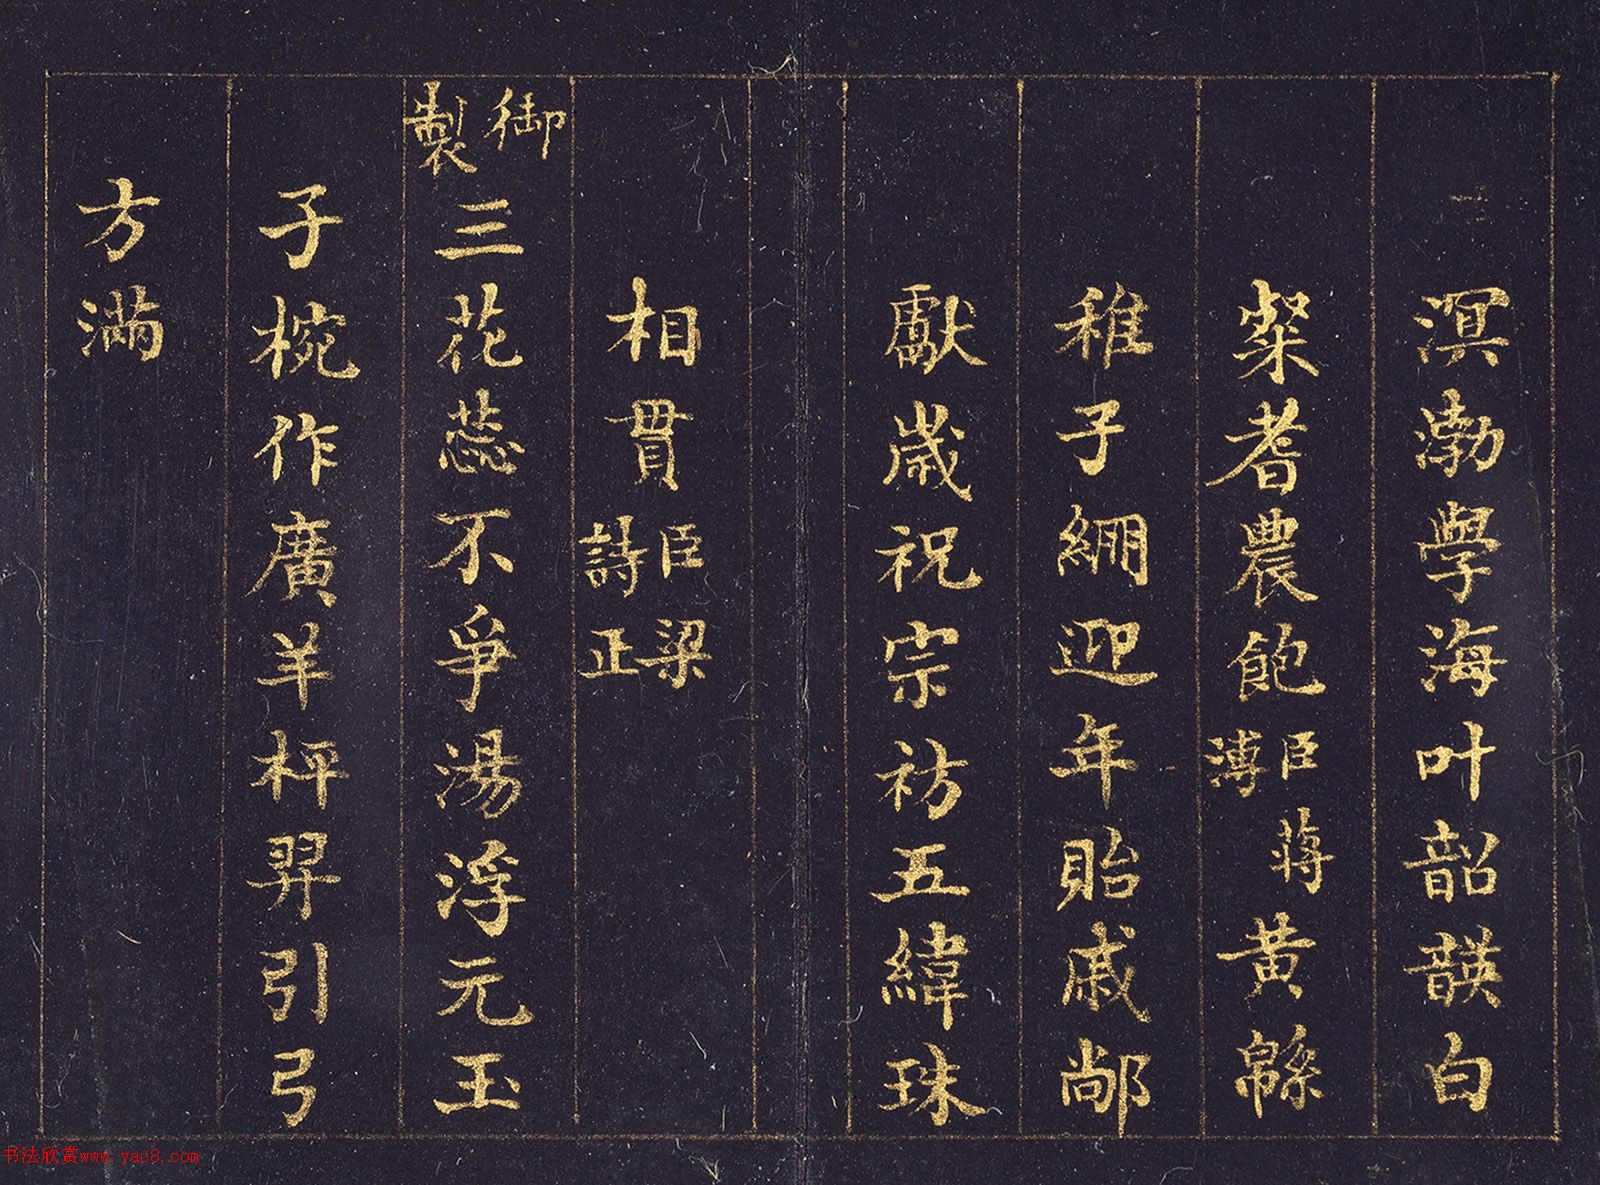 溟渤學海叶韶韺白
粲耆農飽臣蔣溥黄緜
稚子繃迎年貽戚鄰
獻歲祝宗祊五緯珠
相貫臣梁詩正
御製三花蕊不爭湯浮元玉
子椀作廣羊枰羿引弓
方滿
书法欣赏www.yac8.com